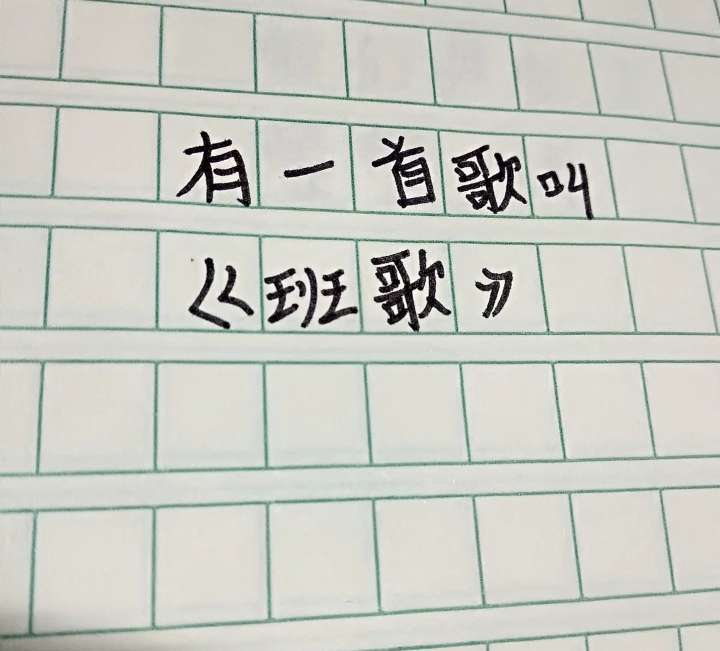 有一首歌叫
《班歌》